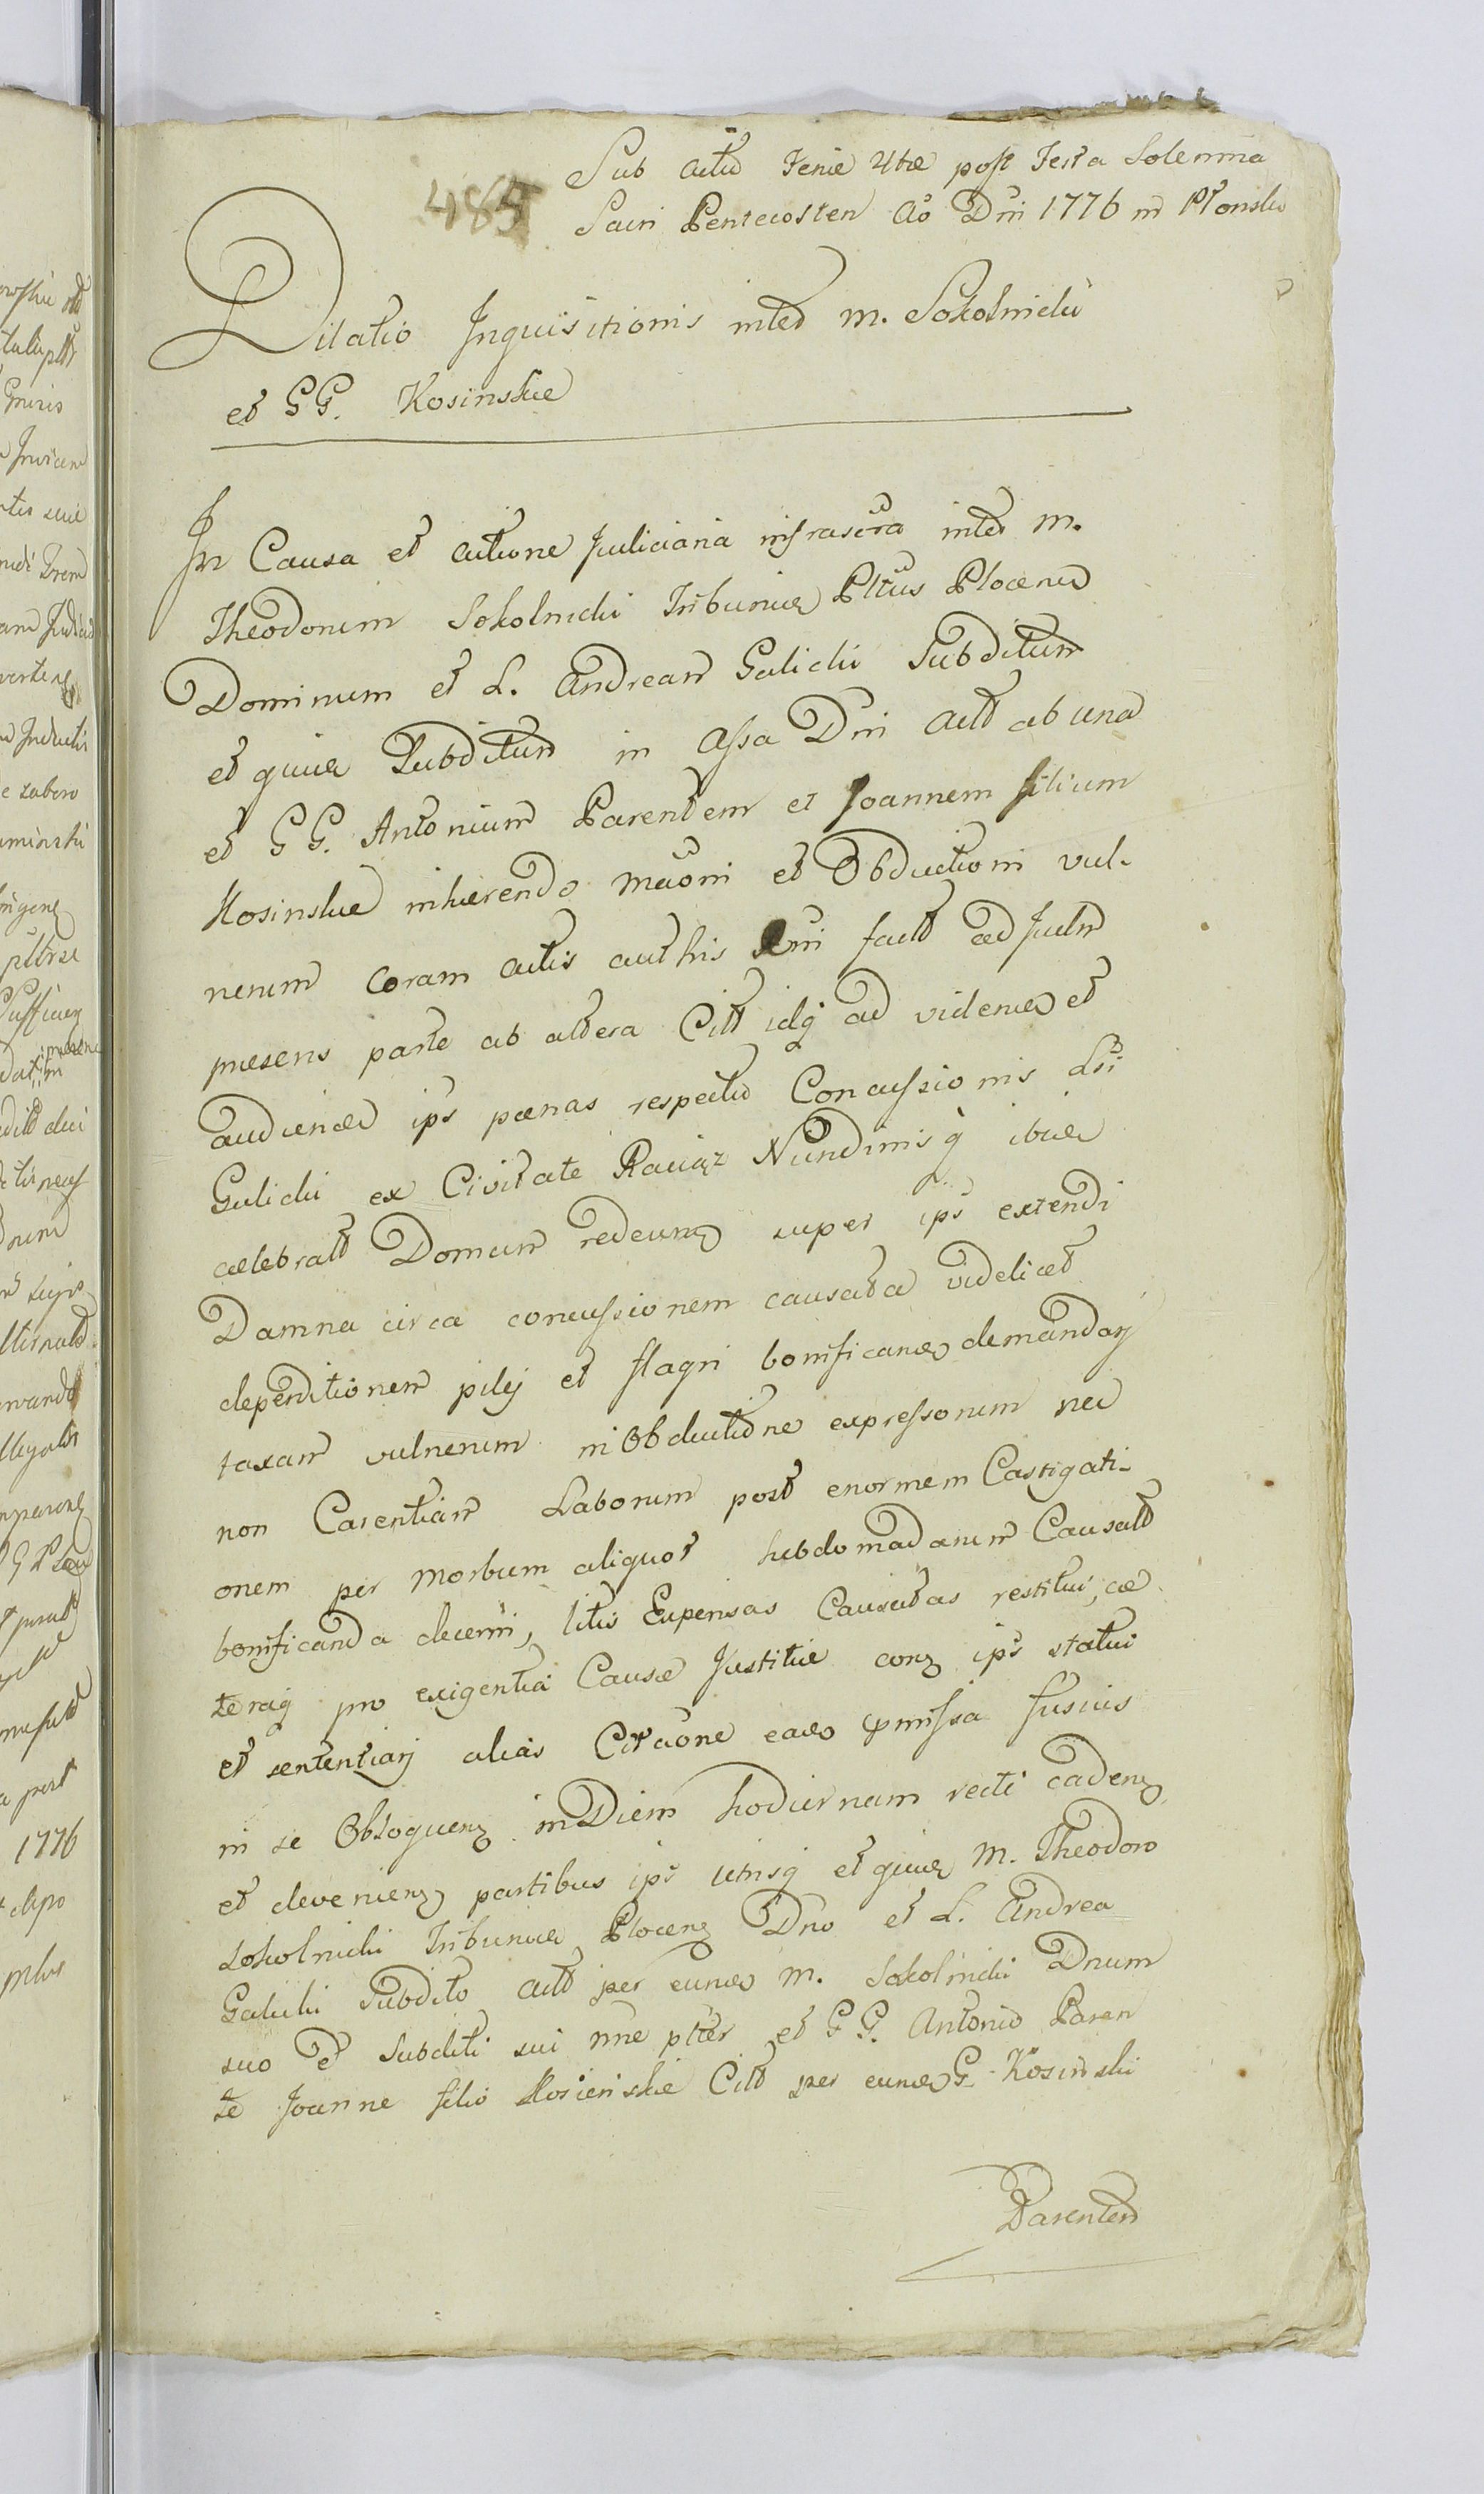 Sub actu Feriæ 4tæ post Festa Solenna
485 Sacri Pentecosten Aõ Dni 1776 in Płonsko
Dilatio Inquisitionis inter M. Sokolnicki
et GG. Kosinskie
In Causa et actione Judiciaria infrascra inter M.
Theodorum Sokolnicki Tribunum Pltus Plocens
Dominum et L. Andream Galicki Subditum
et quidem Subditum in assa Dni act ab una
et GG. Antonium Parentem et Joannem filium
Kosinskie inhærendo mãoni et Obductioni vul-
nerum coram actis authis fact ad Judm
præsens parte ab altera Citt idq ad videndum et
audiendum ips pœnas respectu Concussionis Lsi
Galicki ex Civitate Raciąz Nundinisq ibidem
celebratt Domum redeun super ips extendi
Damna circa concussionem causata videlicet
deperditionem pilej et flagri bonificandum demandari
taxam vulnerum in Obductione expressorum nec
non Carentiam Laborum post enormem Castigati-
onem per Morbum aliquot hebdomadarum Causatt
bonificanda decerni, litis Expensas Causatas restitui, cæ
teraq pro exigentia Causæ Justitiæ con ips statui
et sententiari alias Citãone eadem præmissa fusius
in se Obloquen in Diem hodiernam recte caden
et devenien partibus ips utrisq et quidem M. Theodoro
Sokolnicki Tribuno Plocen Dno et L. Andrea
Galicki Subdito Act per eundem M. Sokolnicki Dnum
suo et Subditi sui nne pltter et GG. Antonio Paren
te Joanne filio Kosienskie Citt per eundem G. Kosinski
Parentem